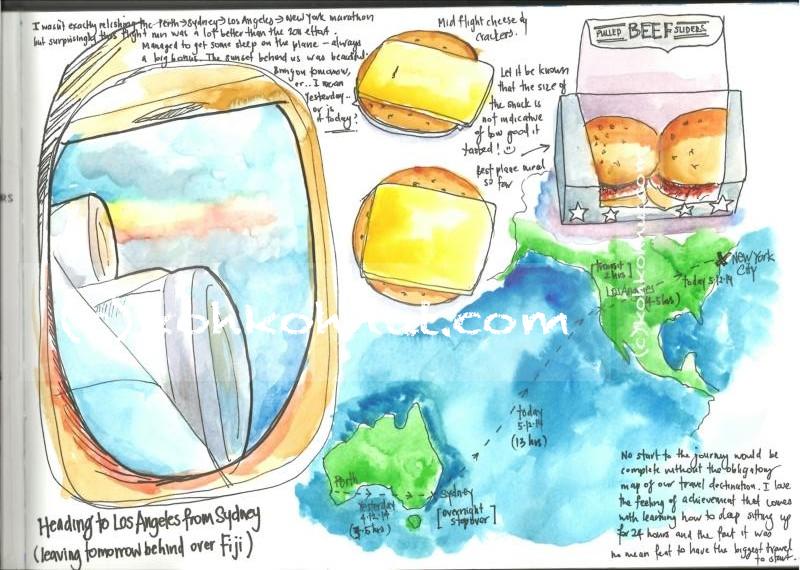 I wasn't exactly relishing the Perth→Sydney→Los Angeles→New York marathon
but surprisingly this flight run was a lot better than the 2011 effort.
Managed to get some sleep on the plane – always
a big bonus. The sunset behind us was beautiful.
Bring on tomorrow,
or.. I mean
Yesterday..
or is
it today?
Mid flight cheese &
crackers.
Let it be known
that the size of
the snack is
not indicative
of how good it
tasted!
Best plane meal
so far
PULLED BEEF SLIDERS
New York
City
transit
2 hrs
Los Angeles
today 5·12·14
(4-5hrs)
today
5·12·14
(13 hrs)
Perth
Sydney
Yesterday
4·12·14
[overnight
stopover]
(c) kohkohmat.com
Heading to Los Angeles from Sydney
(leaving tomorrow behind over Fiji)
No start to the journey would be
complete without the obligatory
map of our travel destination. I love
the feeling of achievement that comes
with learning how to sleep sitting up
for 24 hours and the fact it was
no mean feat to have the biggest travel
to start.